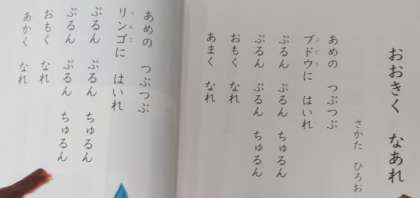 おおきく なあれ
さかた ひろお
あめの つぶつぶ
ブドウに はいれ
ぷるん ぷるん ちゅるん
ぷるん ぷるん ちゅるん
おもく なれ
あまく なれ
あめの つぶつぶ
リンゴに はいれ
ぷるん ぷるん ちゅるん
ぷるん ぷるん ちゅるん
おもく なれ
あかく なれ